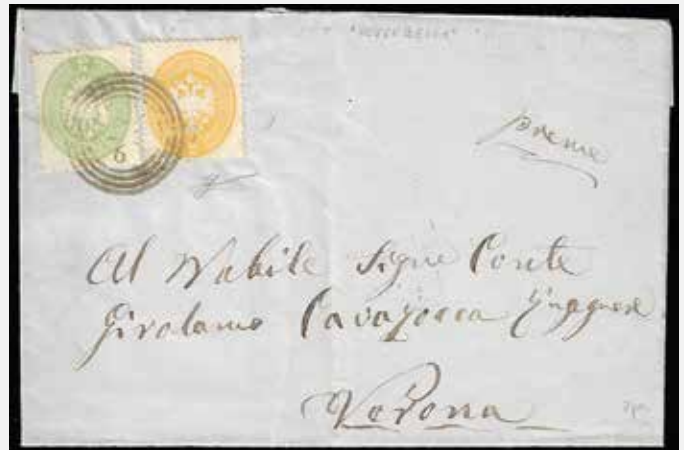 preme
Al Nobile Sigre Conte
Girolamo Cavazocca
Verona
6